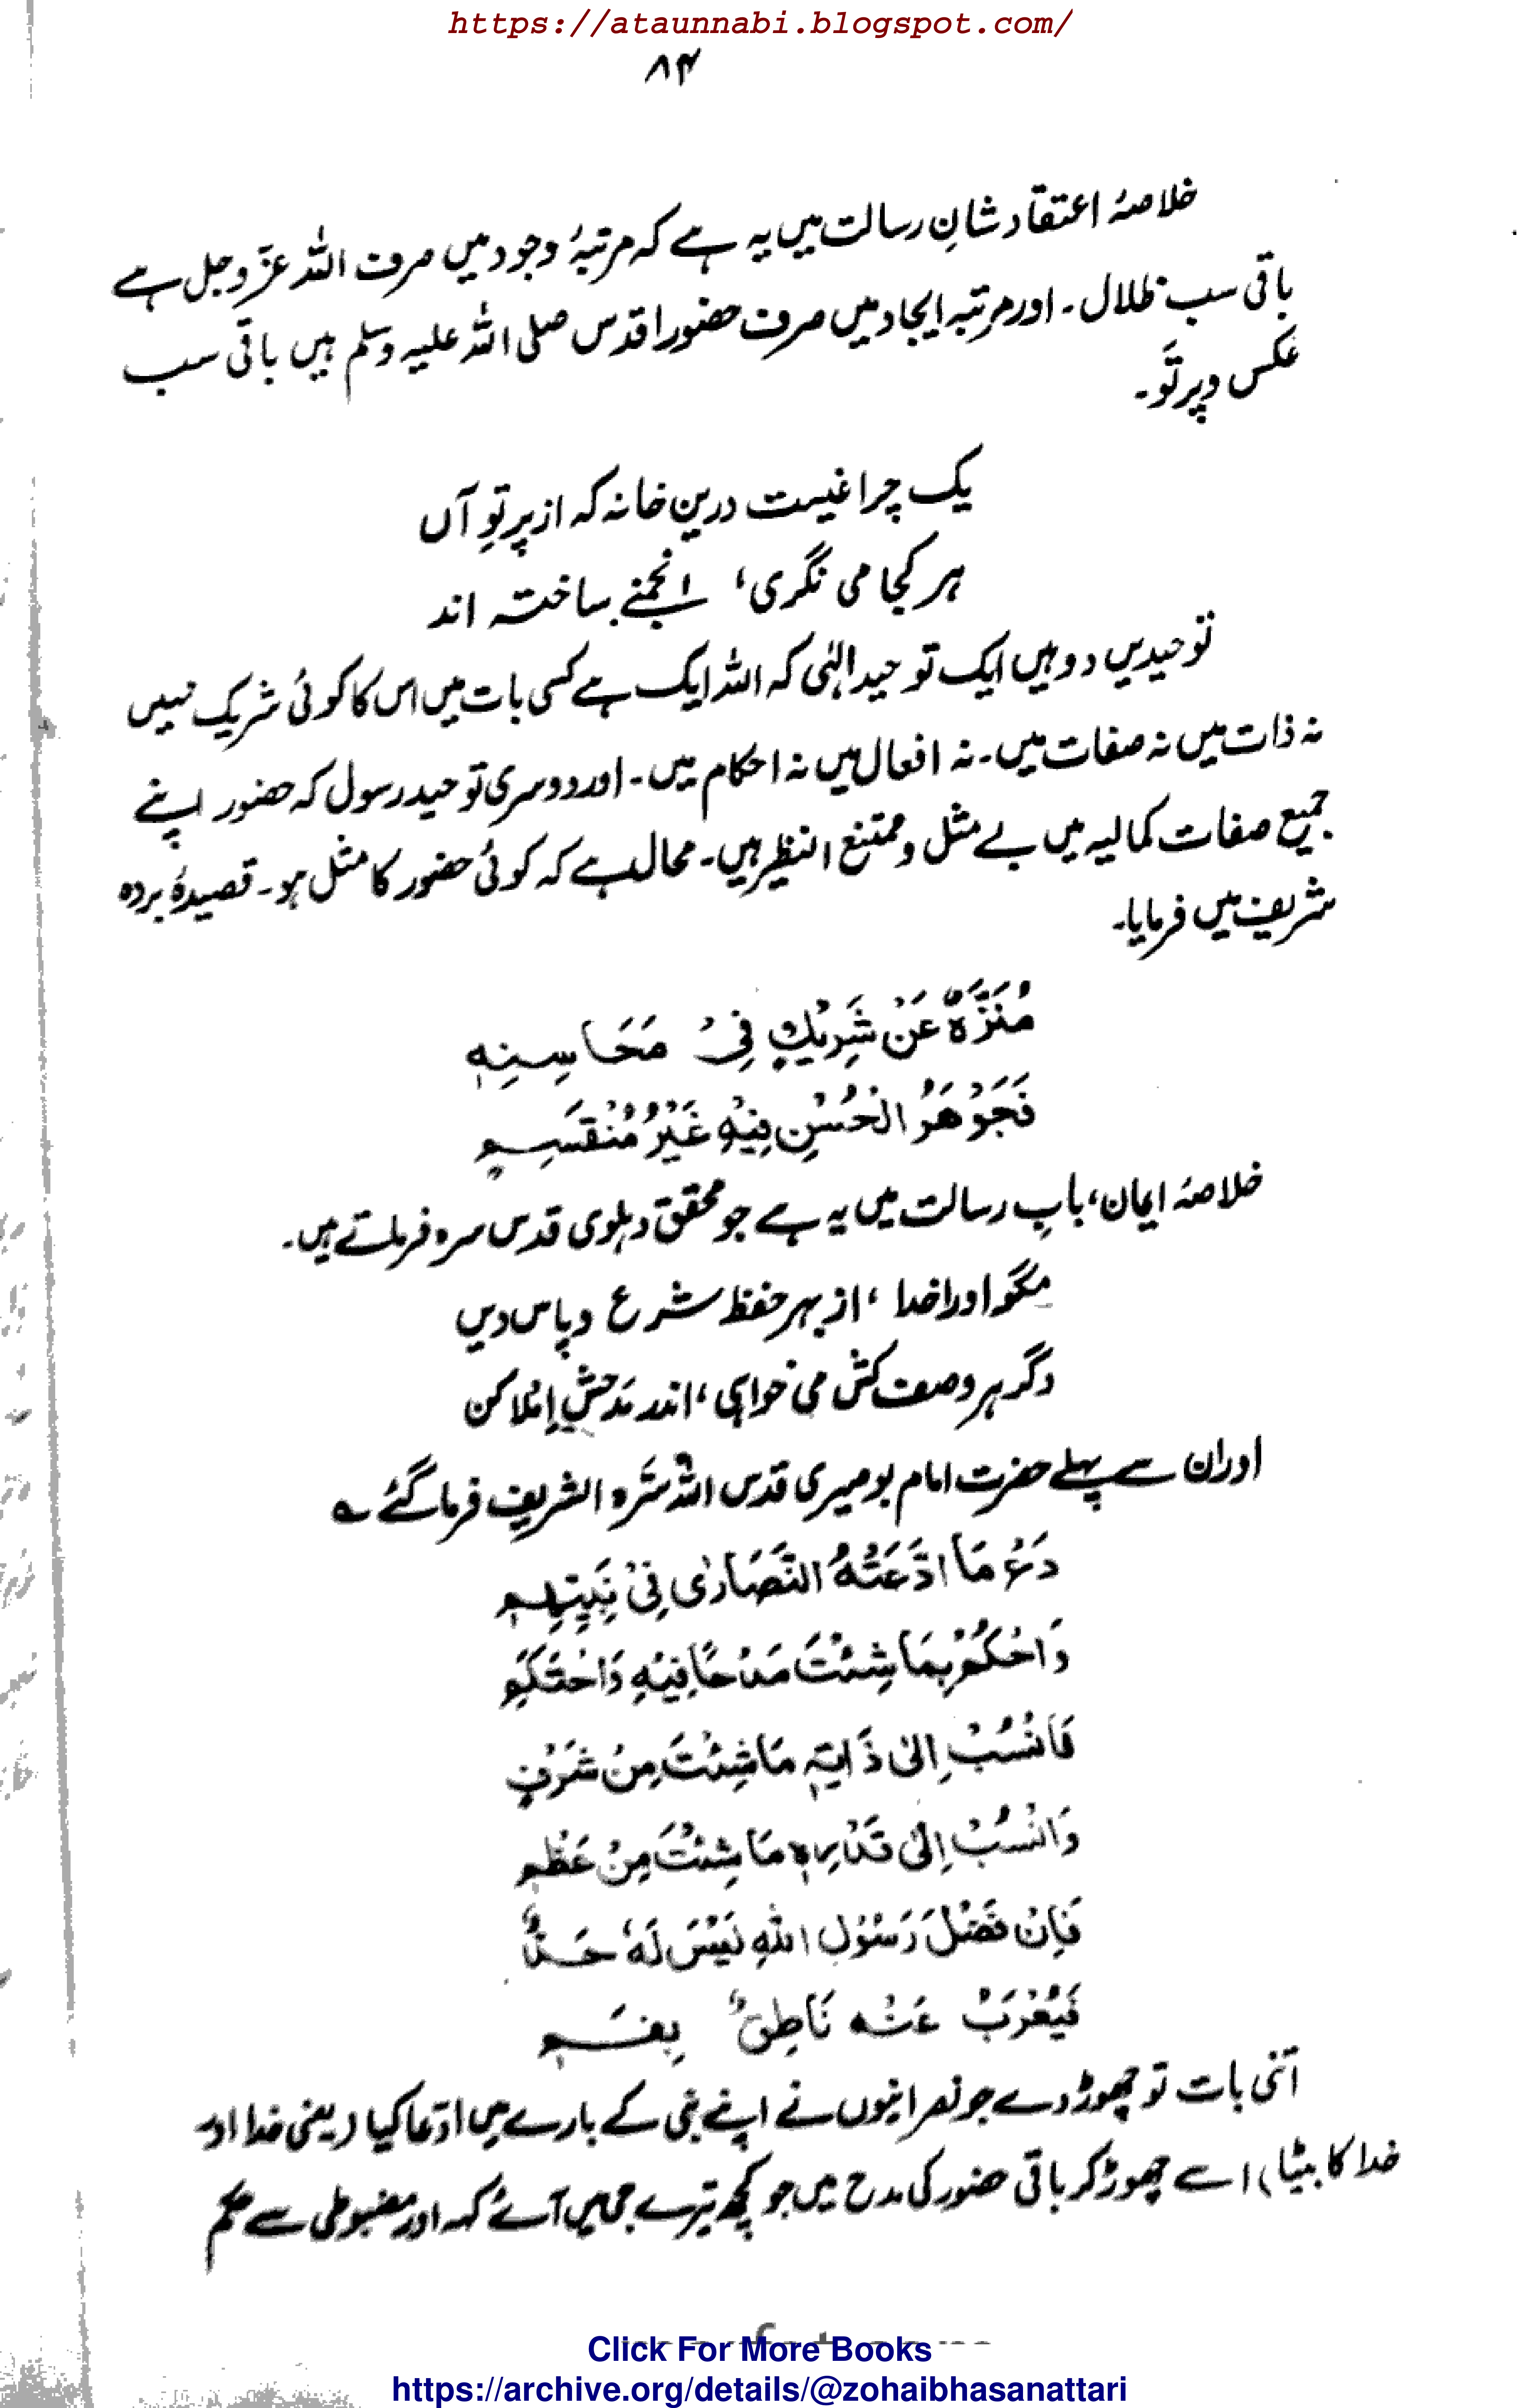 https://ataunnabi.blogspot.com/
۸۴
خلاصۂ اعتقاد شانِ رسالت میں یہ ہے کہ مرتبۂ وجود میں صرف اللہ عزّوجل ہے
باقی سب ظلال۔ اور مرتبہ ایجاد میں صرف حضور اقدس صلی اللہ علیہ وسلم ہیں باقی سب
عکس وپرتَو۔
یک چراغیست درین خانہ کہ از پرتوِ آں
ہر کجا می نگری، انجمنے ساختہ اند
توحیدیں دو ہیں ایک توحید الٰہی کہ اللہ ایک ہے کسی بات میں اس کا کوئی شریک نہیں
نہ ذات میں نہ صفات میں۔ نہ افعال میں نہ احکام میں۔ اور دوسری توحید رسول کہ حضور اپنے
جمیع صفات کمالیہ میں بے مثل وممتنع النظیر ہیں۔ محال ہے کہ کوئی حضور کا مثل ہو۔ قصیدۂ بردہ
شریف میں فرمایا۔
مُنَزَّہٌ عَنْ شَرِیْكٍ فِیْ مَحَاسِنِہٖ
فَجَوْھَرُ الْحُسْنِ فِیْہِ غَیْرُ مُنْقَسِمٖ
خلاصۂ ایمان، بابِ رسالت میں یہ ہے جو محقق دہلوی قدس سرہ فرماتے ہیں۔
مگو اورا خدا، از بہر حفظ شرع و پاس دیں
دگر ہر وصف کش می خواہی، اندر مَدحش اِملا کن
اور ان سے پہلے حضرت امام بوصیری قدس اللہ سِرّہ الشریف فرما گئے ؎
دَعْ مَا ادَّعَتْہُ النَّصَارٰی فِیْ نَبِیِّھِمٖ
وَاحْکُمْ بِمَا شِئْتَ مَدْحًا فِیْہِ وَاحْتَکِمٖ
فَانْسُبْ اِلٰی ذَاتِہٖ مَا شِئْتَ مِنْ شَرَفٍ
وَانْسُبْ اِلٰی قَدْرِہٖ مَا شِئْتَ مِنْ عَظَمٖ
فَاِنَّ فَضْلَ رَسُوْلِ اللہِ لَیْسَ لَہٗ حَدٌّ
فَیُعْرِبَ عَنْہُ نَاطِقٌ بِفَمٖ
اتنی بات تو چھوڑ دے جو نصرانیوں نے اپنے نبی کے بارے میں ادّعا کیا (یعنی خدا اور
خدا کا بیٹا) اسے چھوڑ کر باقی حضور کی مدح میں جو کچھ تیرے جی میں آئے کہہ اور مضبوطی سے حکم
Click For More Books
https://archive.org/details/@zohaibhasanattari